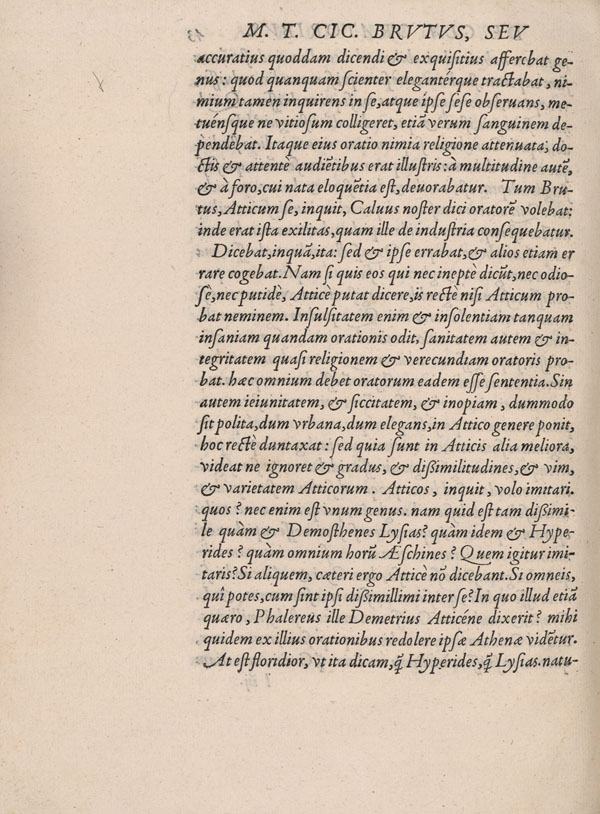 M. T. CIC. BRVTVS, SEV
accuratius quoddam dicendi & exquisitius afferebat ge-
nus: quod quanquam scienter elegantérque tractabat, ni-
mium tamen inquirens in se, atque ipse sese obseruans, me-
tuénsque ne vitiosum colligeret, etiã verum sanguinem de-
pendebat. Itaque eius oratio nimia religione attenuata; do-
ctis & attentè audiẽtibus erat illustris: à multitudine autẽ,
& à foro, cui nata eloquẽtia est, deuorabatur. Tum Bru-
tus, Atticum se, inquit, Caluus noster dici oratorẽ volebat:
inde erat ista exilitas, quam ille de industria consequebatur.
Dicebat, inquã, ita: sed & ipse errabat, & alios etiam er
rare cogebat. Nam si quis eos qui nec ineptè dicũt, nec odio-
sè, nec putidè, Atticè putat dicere, is rectè nisi Atticum pro-
bat neminem. Insulsitatem enim & insolentiam tanquam
insaniam quandam orationis odit, sanitatem autem & in-
tegritatem quasi religionem & verecundiam oratoris pro-
bat. hæc omnium debet oratorum eadem esse sententia. Sin
autem ieiunitatem, & siccitatem, & inopiam, dummodo
sit polita, dum vrbana, dum elegans, in Attico genere ponit,
hoc rectè duntaxat: sed quia sunt in Atticis alia meliora,
videat ne ignoret & gradus, & dißimilitudines, & vim,
& varietatem Atticorum. Atticos, inquit, volo imitari.
quos? nec enim est vnum genus. nam quid est tam dißimi-
le quàm & Demosthenes Lysias? quàm idem & Hype-
rides? quàm omnium horũ Æschines? Quem igitur imi-
taris? Si aliquem, cæteri ergo Atticè nõ dicebant. Si omneis,
quî potes, cum sint ipsi dißimillimi inter se? In quo illud etiã
quæro, Phalereus ille Demetrius Atticéne dixerit? mihi
quidem ex illius orationibus redolere ipsæ Athenæ vidẽtur.
At est floridior, vt ita dicam, q̃ Hyperides, q̃ Lysias. natu-